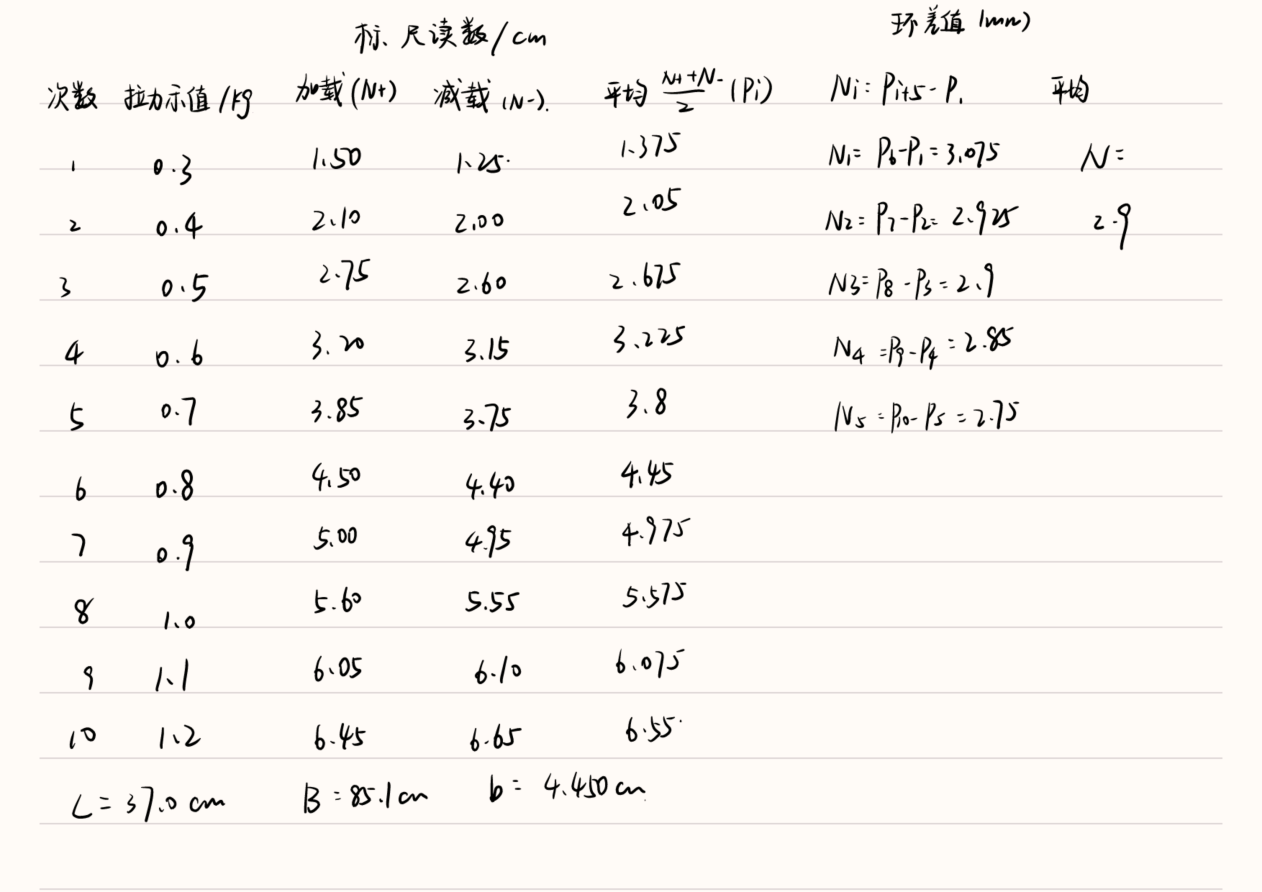 标尺读数/cm 环差值(mm)
次数 拉力示值/kg 加载(N+) 减载(N-). 平均 N++N-/2 (Pi) Ni=Pi+5-P, 平均
1 0.3 1.50 1.25. 1.375 N1=P6-P1=3.075 N=
2 0.4 2.10 2.00 2.05 N2=P7-P2=2.925 2.9
3 0.5 2.75 2.60 2.675 N3=P8-P3=2.9
4 0.6 3.20 3.15 3.225 N4=P9-P4=2.85
5 0.7 3.85 3.75 3.8 N5=P10-P5=2.75
6 0.8 4.50 4.40 4.45
7 0.9 5.00 4.95 4.975
8 1.0 5.60 5.55 5.575
9 1.1 6.05 6.10 6.075
10 1.2 6.45 6.65 6.55.
L=37.0cm B=85.1cm b=4.450cm